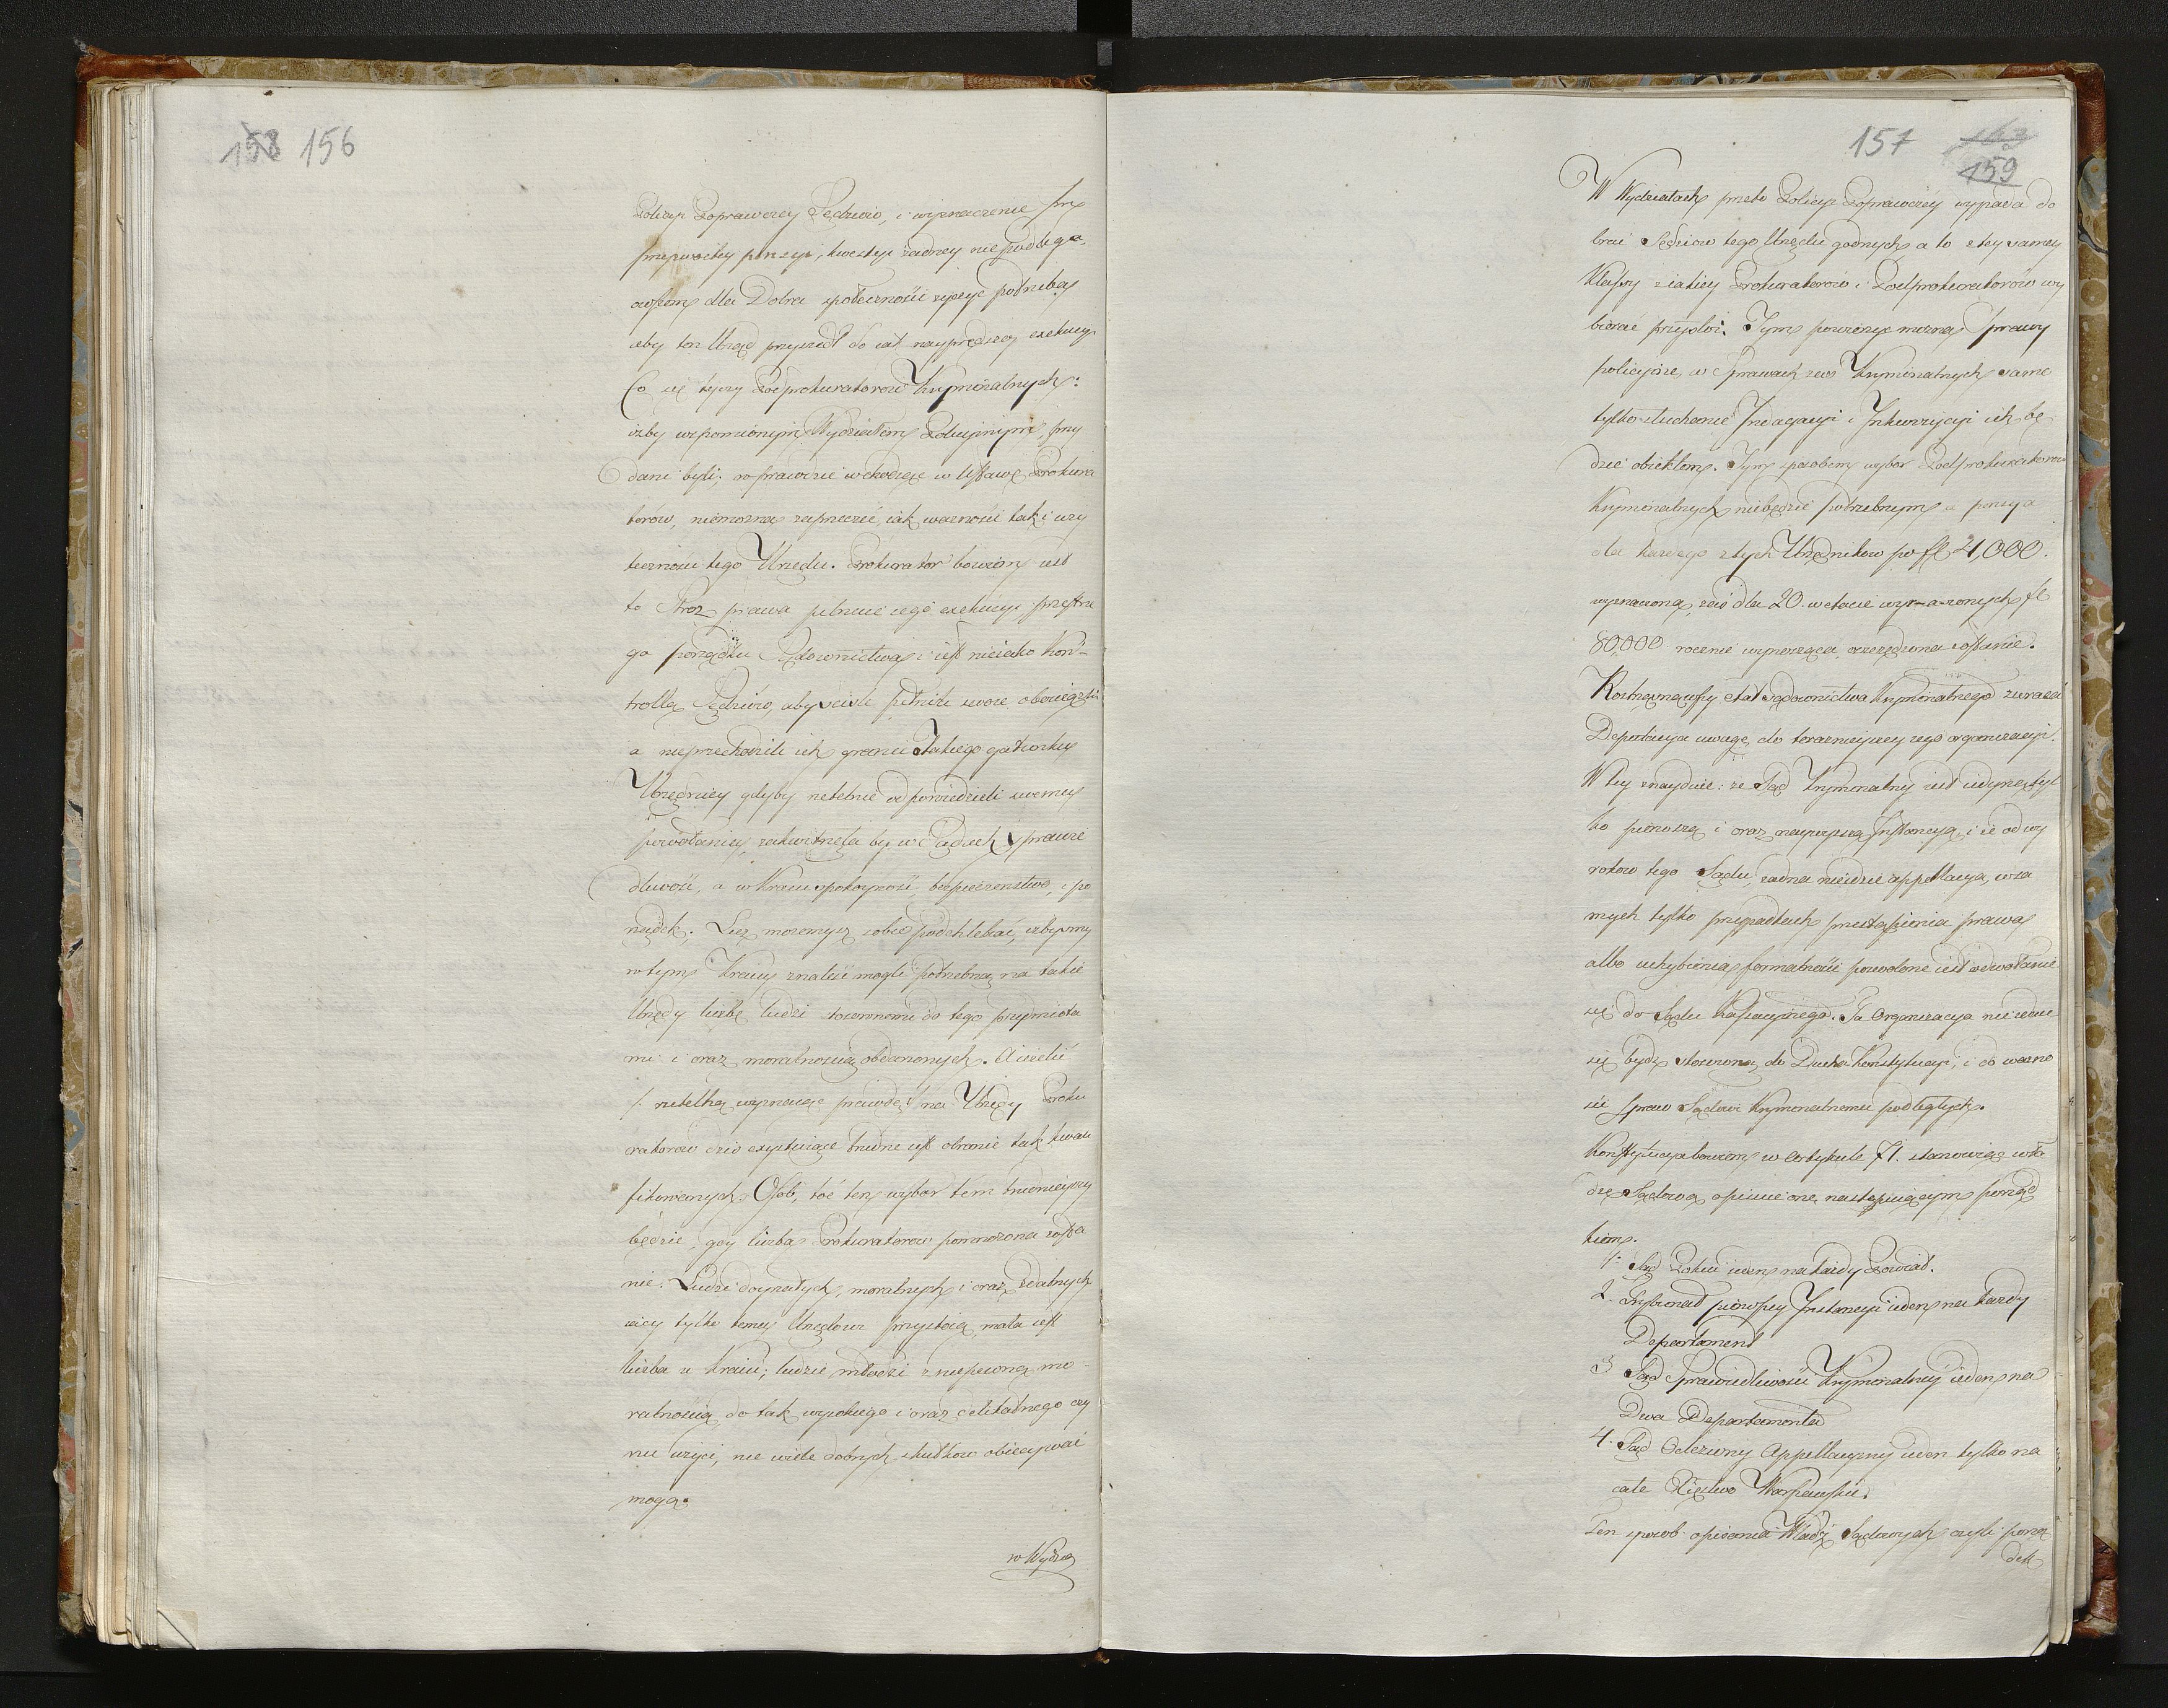 158 156
Policyi Poprawczey Sędziów, i wyznaczenie im
przyzwoitey pensyi, kwestyi żadney niepodlega,
owszem dla Dobra społeczności życzyć potrzeba
aby ten Urząd przyszedł do iak nayprędszey exekucyi
Co się tyczy Podprokuratorów Kryminalnych:
iżby wspomnionym Wydziałom Policyinym, przy
dani byli; wprawdzie wchodząc w Ustawę Prokura
torów, niemożna zaprzeczyć, iak ważności tak i uży
teczności tego Urzędu. Prokurator bowiem iest
to Stróż prawa pilnuie iego exekucyi przestrze
ga porządku Sądownictwa i iest nieiako Kon-
trollą Sędziów, aby ściśle pełnili swoie obowiązki
a nieprzechodzili ich granic. Takiego gatunku
Urzędnicy gdyby rzetelnie odpowiedzieli swemu
powołaniu, zakwitnęła by w Sądach sprawie
dliwość, a w Kraiu spokoyność, bezpieczeństwo, i po
rządek; Lecz możemyż sobie podchlebiać, iżbyśmy
w tym Kraiu znaleść mogli potrzebną na takie
Urzędy liczbę ludzi stosownemi do tego przymiota
mi i oraz moralnością obdarzonych. A ieżeli
/: rzetelną wyznaiąc prawdę :/ na Urzędy Proku
ratorów dziś exystuiące trudne iest obranie tak kwali
fikowanych Osób, toć ten wybór tem trudnieyszy
będzie, gdy liczba Prokuratorów pomnożona zosta
nie. Ludzi doyrzałych, moralnych i oraz zdatnych
iacy tylko temu Urzędowi przystoią, mała iest
liczba w Kraiu; ludzie młodzi z niepewną mo-
ralnością do tak wysokiego i oraz delikatnego czy
nu użyci, nie wiele dobrych skutków obiecywać
mogą.
w Wydzia
157 163
159
W Wydziałach przeto Policyi Poprawczey wypada do
brać Sędziów tego Urzędu godnych, a to z tey samey
Klassy z iakiey Prokuratorów i Podprokuratorów wy
bierać przyszłoż. Tym powierzyć można Sprawy
policyine, w Sprawach zaś Kryminalnych same
tylko słuchanie Indagacyi i Inkwizycyi ich bę
dzie obiektem. Tym sposobem wybór Podprokuratorów
Kryminalnych niebędzie potrzebnym a pensya
dla każdego z tych Urzędników po fl 4,000.
wyznaczona, zaś dla 20. w etacie wyrażonych fl
80,000 rocznie wynosząca oszczędzona zostanie.
Roztrząsnąwszy etat Sądownictwa Kryminalnego zwraca
Deputacya uwagę do teraznieyszey iego organizacyi.
W tey znayduie: że Sąd Kryminalny iest iedyną tyl
ko pierwszą i oraz naywyższą Instancyą, i że od wy
roków tego Sądu, żadna nieidzie appellacya, w sa
mych tylko przypadkach przestąpienia prawa
albo uchybienia formalności pozwolone iest odwołanie
się do Sądu Kassacyinego. Ta Organizacya nie zdaie
się bydź stosowną do Ducha Konstytucyi, i do ważno
ści spraw Sądowi Kryminalnemu podległych.
Konstytucya bowiem w Artykule 71. stanowiąc wła
dzę Sądową opisuie onę następuiącym porząd
kiem.
1. Sąd Pokoiu ieden na każdy Powiat.
2. Trybunał pierwszey Instancyi ieden na każdy
Departament
3 Sąd Sprawiedliwości Kryminalney ieden na
Dwa Departamenta
4. Sąd Oddzielny Appellacyiny ieden tylko na
całe Xięstwo Warszawskie.
Ten sposób opisania Władz Sądowych czyli porzą
dek